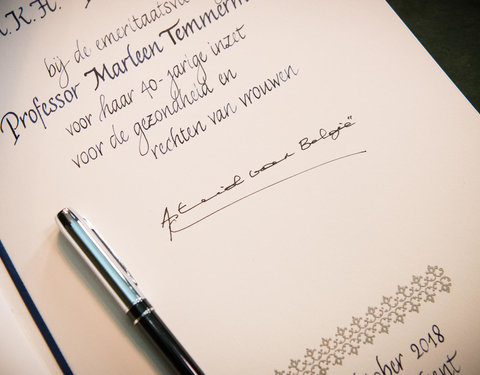 .K.H.
bij de emeritaatsvie
Professor Marleen Temmerm
voor haar 40-jarige inzet
voor de gezondheid en
rechten van vrouwen
Astrid van België
ober 2018
ent